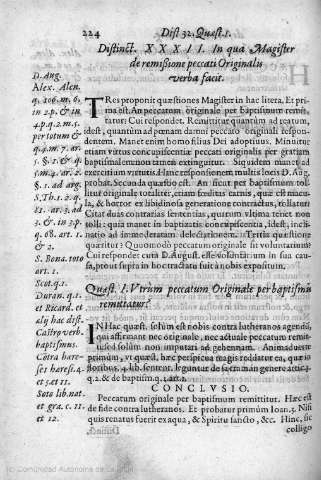 224 Dist 32. Quæst. 1.
Distinct. XXXII. In qua Magister
de remissione peccati Originalis
verba facit.
D. Aug.
Alex. Alen.
q. 106. m. 6.
in 2. p. & in
4. p. q. 2. m. 5.
per totum &
q. 4. m. 7. ar.
5. §. 2. & q.
5. m. 4. ar. 2
§. 1. ad arg.
S. Th. 1. 2. q.
81. ar. 3. ad
3. & 2. in
q. 68. art. 1. &
2.
S. Bona. toto
art. 1.
Scot. q. 1.
Duran. q. 1.
et Ricard. et
alij hac dist.
Castro verb.
baptismus.
Cotra hære-
ses hæresi. 4.
et 5. et 11.
Soto lib. nat.
et gra. c. 11.
et 12.
TRes proponit quæstiones Magister in hac litera. Et pri-
ma est. An peccatum originale per baptismum remit-
tatur? Cui respondet. Remittitur quantum ad reatum,
idest, quantum ad pœnam damni peccato originali respon-
dentem. Manet enim homo filius Dei adoptius. Minuitur
etiam virtus concupiscentiæ peccati originalis per gratiam
baptismalem non tamen extinguitur. Siquidem manet ad
exercitium virtutis. Hunc responsionem multis locis D. Aug.
probat. Secunda quæstio est. An sicut per baptismum tol-
litur originale totaliter, etiam fœditas carnis, quæ est macu-
la, & horror ex libidinosa generatione contractus, tollatur?
Citat duas contrarias sententias, quarum vltima tenet non
tolli: quia manet in baptizatis concupiscentia, idest, incli-
natio ad immoderatam delectationem. Tertia quæstione
quæritur? Quomodò peccatum originale sit voluntarium?
Cui respondet cum D. August. esse voluntarium in sua cau-
sa, prout supra in hoc tractatu fuit à nobis expositum.
Quæst. I. Vtrum peccatum Originale per baptismum
remittatur?
IN Hac quæst. solum est nobis contra lutheranos agendū,
qui affirmant nec originale, nec actuale peccatum remit-
ti, sed solùm non imputari ad gehennam. Animaduerte
primùm, vt quæst. hæc perspicua magis reddatur ea, quæ in
floribus. 4. lib. sentent. legūtur de sacramen. genere artic. 3.
q. 2. & de baptism. q. 1. art. 2.
CONCLVSIO.
Peccatum originale per baptismum remittitur. Hæc est
de fide contra lutheranos. Et probatur primùm Ioan. 3. Nisi
quis renatus fuerit ex aqua, & Spiritu sancto, &c. Hinc, sic
colligo
(c) Comunidad Autónoma de La Rioja